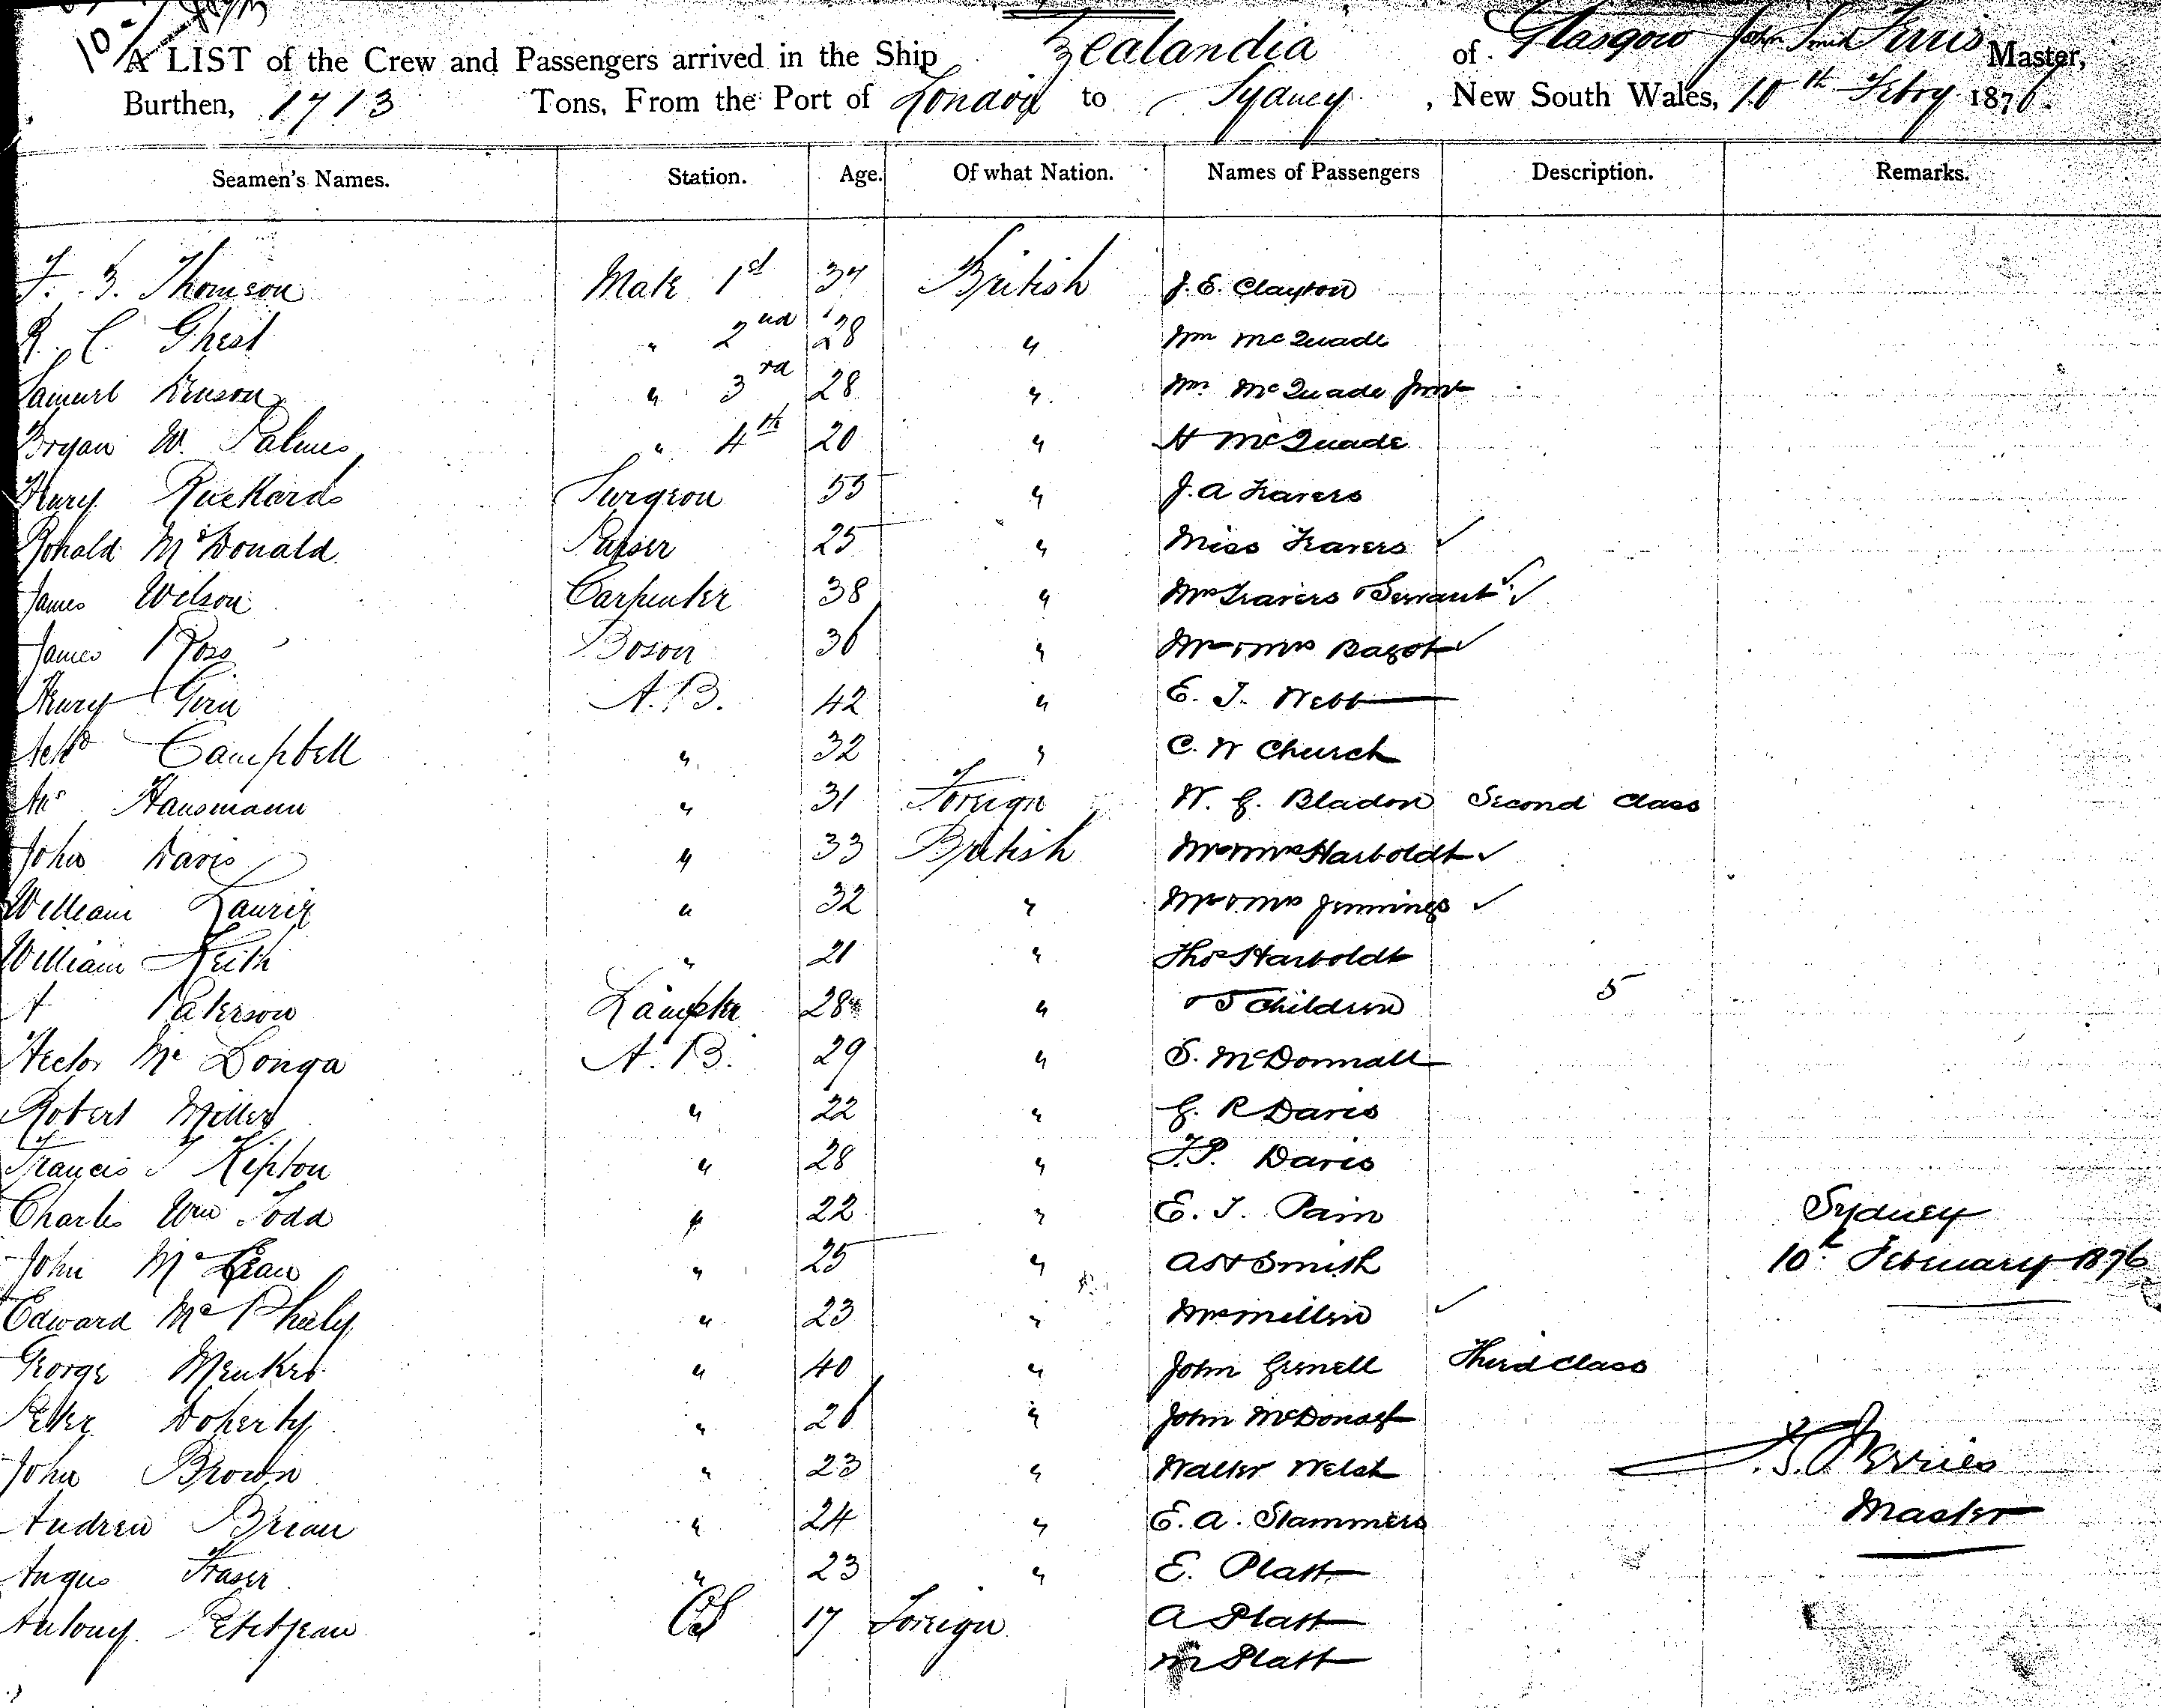 10
A LIST of the Crew and Passengers arrived in the Ship Zealandia of Glasgow John Smith Ferries Master,
Burthen, 1713 Tons, From the Port of London to Sydney, New South Wales, 10th Febry 1876.
Seamen's Names. Station. Age. Of what Nation. Names of Passengers Description. Remarks.
Thomson Mate 1st 37 British J. E. Clayton
R. C. Ghest " 2nd 28 " Wm McQuade
Samuel " 3rd 28 " Wm McQuade Junr
Bryan W. Palmes " 4th 20 " H McQuade
Henry Rickards Surgeon 55 " J. A Travers
Ronald McDonald Purser 25 " Miss Travers ✓
James Wilson Carpenter 38 " Mrs Travers & Servant ✓ ✓
James Ross Boson 36 " Mr & Mrs Bagot ✓
Henry A.B. 42 " E. J. Webb
Campbell " 32 " C. W Church
Hausmann " 31 Foreign W. G. Bladon Second Class
John Davis " 33 British Mr & Mrs Harboldt ✓
William Laurie " 32 " Mr & Mrs Jennings ✓
William Keith " 21 " Thos Harboldt
A Paterson Lampter 28 " & 5 Children 5
Hector Mc Longa A.B. 29 " S. McDonnall
Robert Miller " 22 " G. R Davis
Francis Kipton " 28 " J.P. Davis
Charles Wm Todd " 22 " E. J. Pain Sydney
John McLean " 25 " A S H Smith 10th February 1876
Edward McPhely " 23 " Mrs Mellin ✓
George Menkes " 40 " John Grenell Third Class
Peter Doherty " 26 " John McDonagh
John Brown " 23 " Walter Welsh J. S. Ferries
Andrew Brian " 24 " E. A. Stammers Master
Angus Fraser " 23 " E. Platt
Antony Petitjean OS 17 Foreign A Platt
M Platt